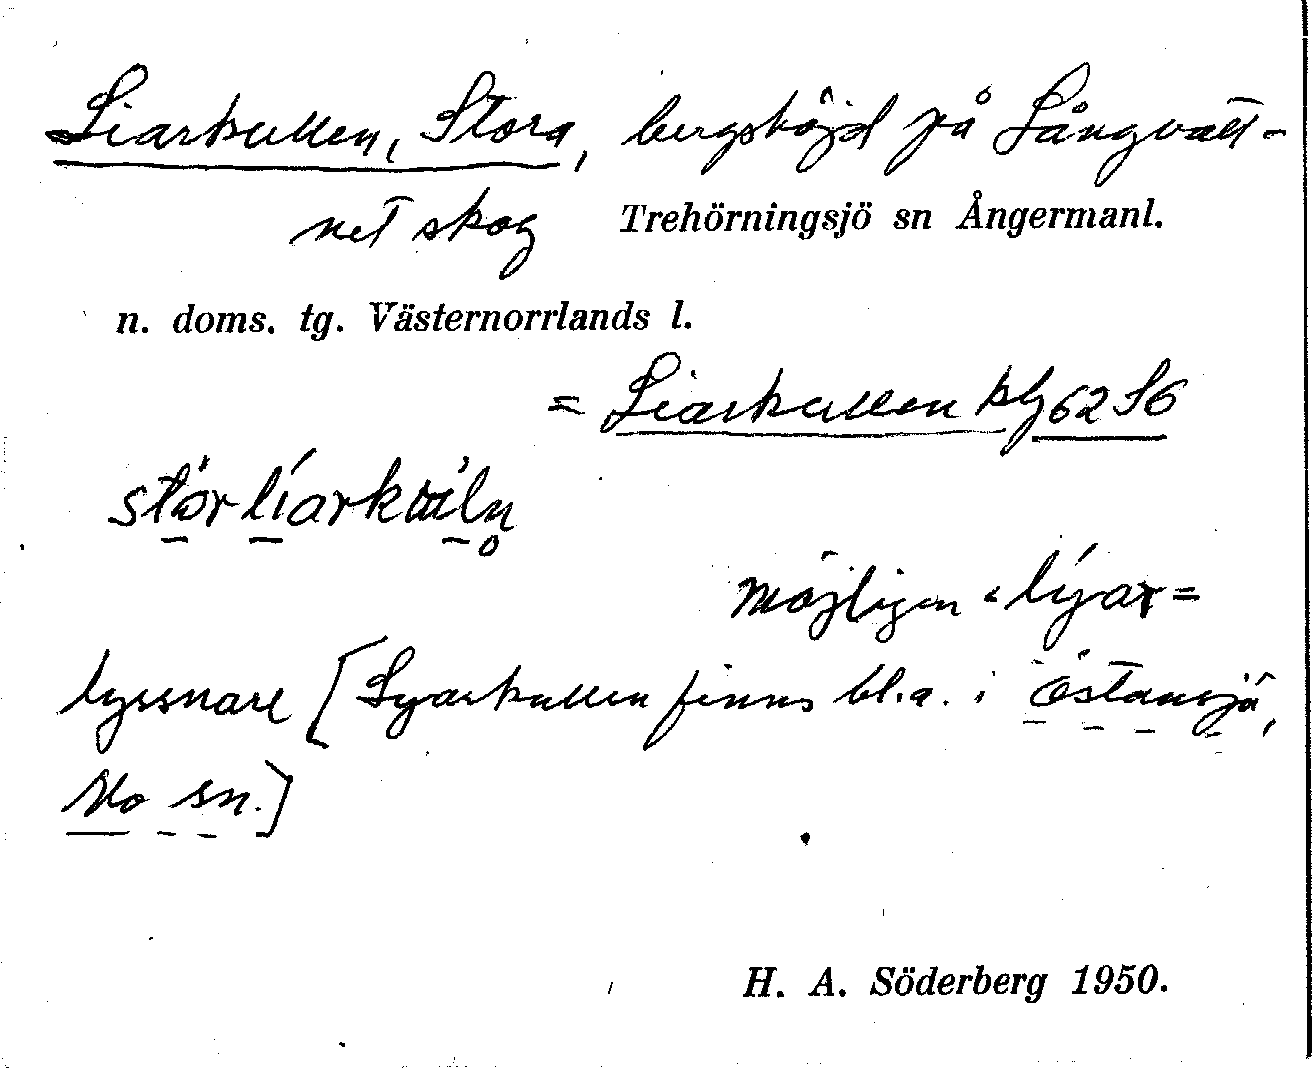 Liarkullen, Stora, bergshöjd på Långvatt-
net skog Trehörningsjö sn Ångermanl.
n. doms. tg. Västernorrlands l.
= Liarkullen kbl 62 S6
möjligen < lyar =
lyssnare [Lyarkullen finns bl.a. i Östansjö,
Mo sn.]
H. A. Söderberg 1950.